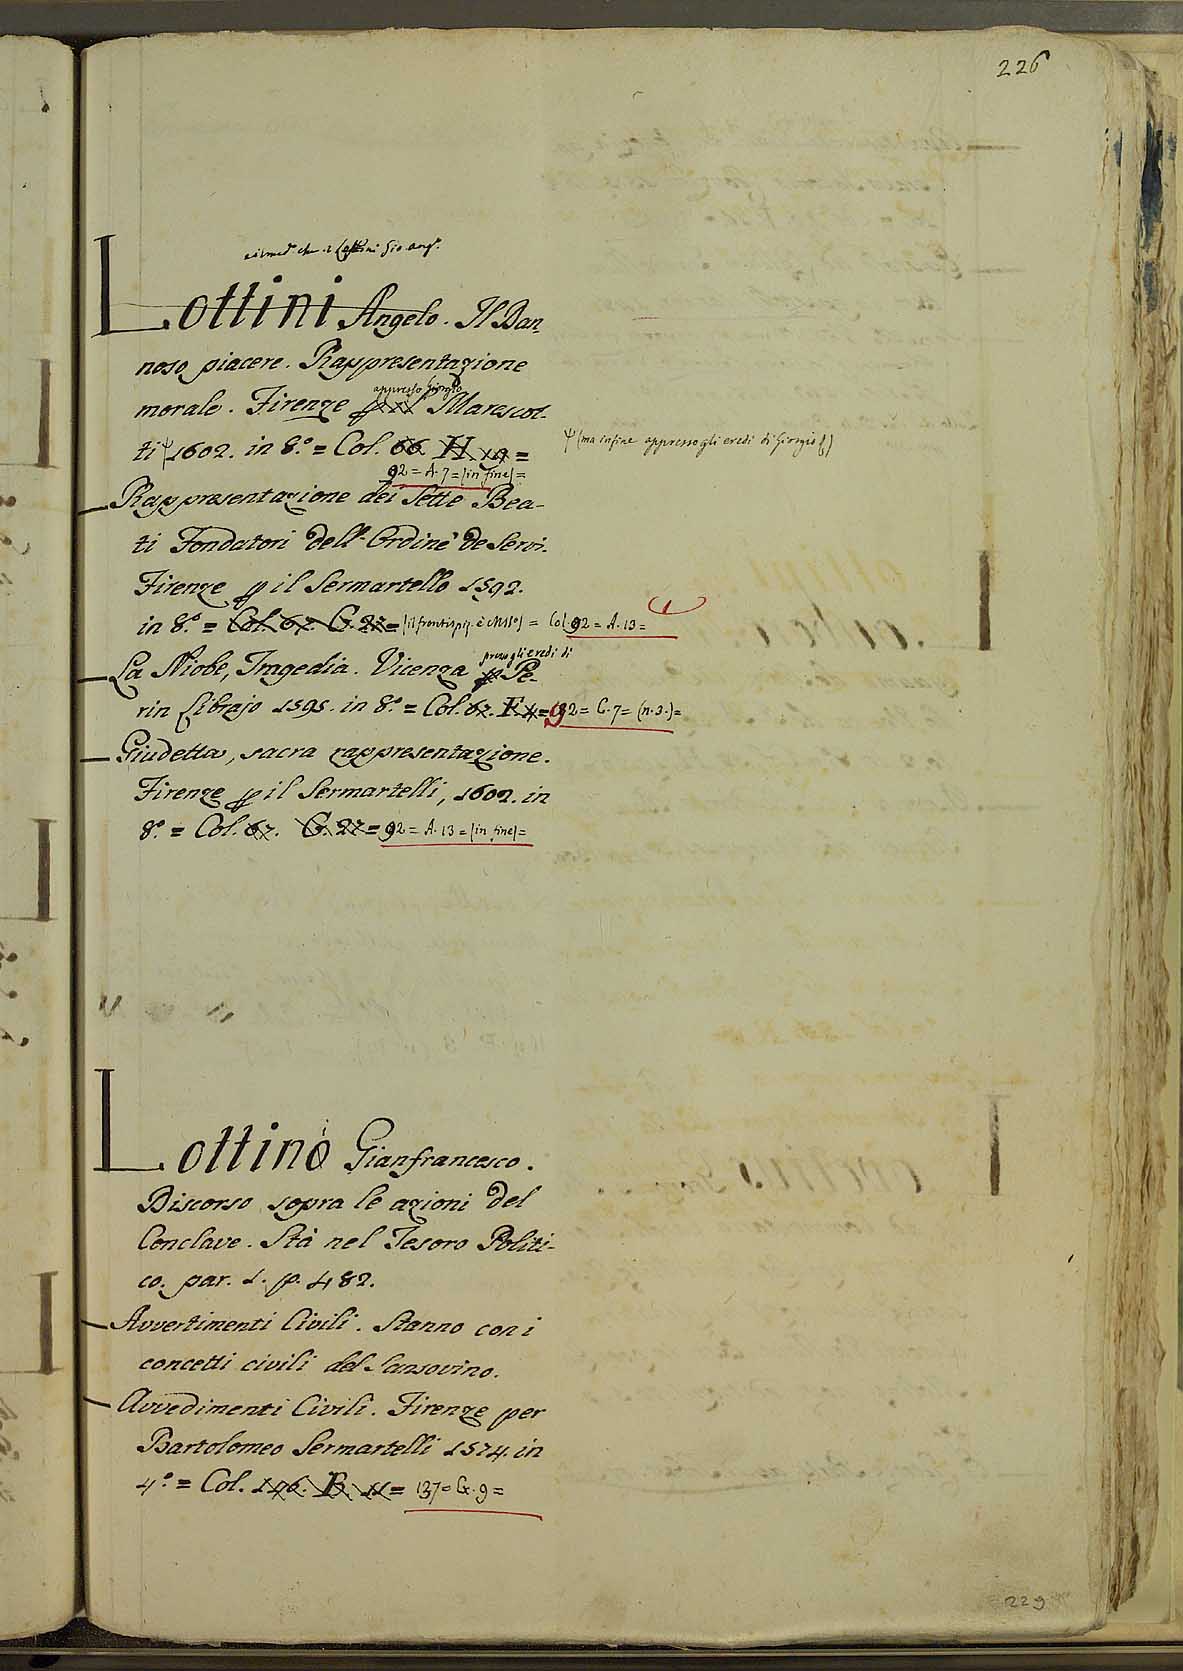 226
Lottini Angelo. Il Dan-
noso piacere. Rappresentazione
appresso Giorgio
morale. Firenze Marescot-
ti Ψ 1602. in 8.º = Col. 66. H. 19 =
Ψ (ma infine appresso gli eredi di Giorgio
92 = A. 7 = (in fine) =
Rappresentazione dei Sette Bea-
ti Fondatori dell'Ordine de Servi.
Firenze p il Sermartello 1592.
in 8.º = Col. 67. G. 27 = (il frontispiz. è MSSº) = Col 92 = A. 13 =
presso gli eredi di
La Niobe, Tragedia. Vicenza p Pe-
rin Librajo 1595. in 8.º = Col. 67. F 4 = 92 = C. 7 = (n. 3.) =
Giudetta, sacra rappresentazione.
Firenze p il Sermartelli, 1602. in
8.º = Col. 67. G. 27 = 92 = A. 13 = (in fine) =
Lottino Gianfrancesco.
Discorso sopra le azioni del
Conclave. Stà nel Tesoro Politi-
co. par. 1. p. 482.
Avvertimenti Civili. Stanno con i
concetti civili del Sansovino.
Avvedimenti Civili. Firenze per
Bartolomeo Sermartelli 1574. in
4.º = Col. 146. B. 11 = 137 = G. 9 =
229